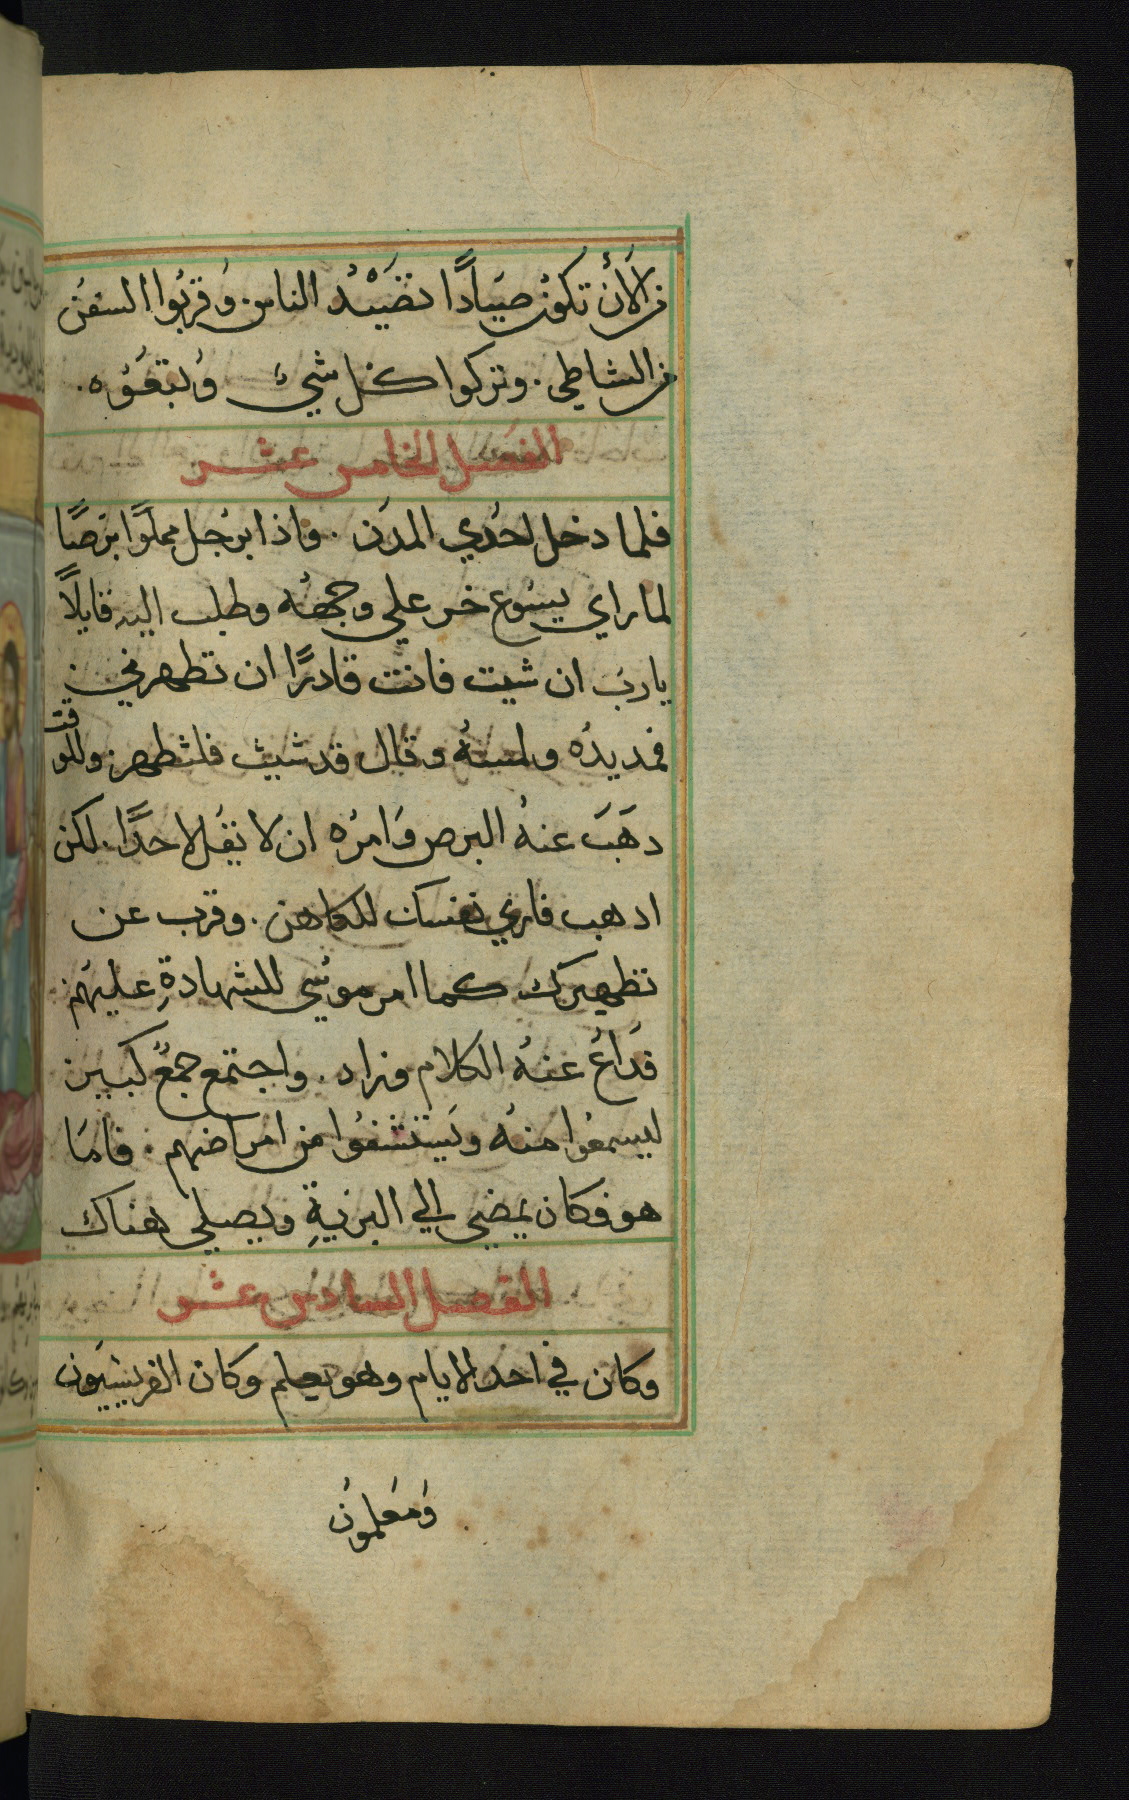 من الأن تكون صيادًا تصَيْد الناس. وَقربُوا السفن
من الشاطي. وتركوا كل شيء وَتبعُوه.
الفصل الخامس عشر
فلما دخل احدي المدن. واذا برجل مملوًا برصًا
لما راي يسوع خر علي وجهه وطلب اليه قايلًا
يارب ان شيت فانت قادرًا ان تطهرني.
فمد يدُه ولمسهُ وقال قد شيت فلتطهر. وللوقت
دهَبَ عنهُ البرص وَامرُه ان لا تقل لاحدًا. لكن
ادهب فاري نفسك للكاهن. وقرب عن
تطهيرك كما امر موسي للشهادةِ عليهم.
فدَاعَ عنهُ الكلام وزاد. واجتمع جمعٌ كبير
ليسمعُوا منهُ ويَستشفوا من امراضهم. فامَا
هو فكان يمضي الي البريةِ ويصلي هناك
الفصل السادس عشر
وكان في احد الايام وهو يعلم وكان الفريسيَون
وَمعَلمونَ